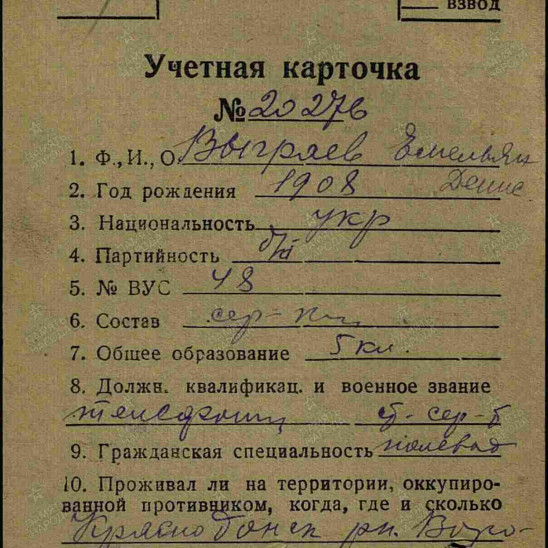 взвод
Учетная карточка
№ 20276
1. Ф., И., О. Выграев Емельян
Денис.
2. Год рождения 1908
3. Национальность укр
4. Партийность б/п
5. № ВУС 48
6. Состав сер-
7. Общее образование 5 кл.
8. Должн. квалификац. и военное звание
телефонист ст-сер-т
9. Гражданская специальность
10. Проживал ли на территории, оккупиро-
ванной противником, когда, где и сколько
Краснодонск рн. Воро-